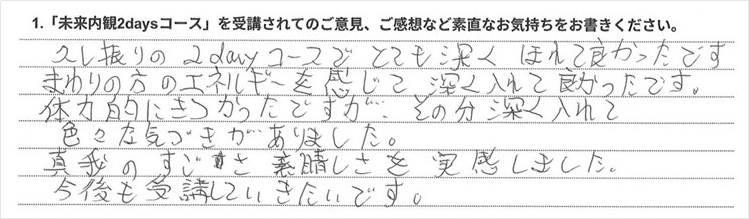 1.「未来内観2daysコース」を受講されてのご意見、ご感想など素直なお気持ちをお書きください。
久し振りの2dayコースでとても深くほれて良かったです
まわりの方のエネルギーを感じて深く入れて良かったです。
体力的にきつかったですが、その分深く入れて
色々な気づきがありました。
真我のすごさ素晴しさを実感しました。
今後も受講していきたいです。